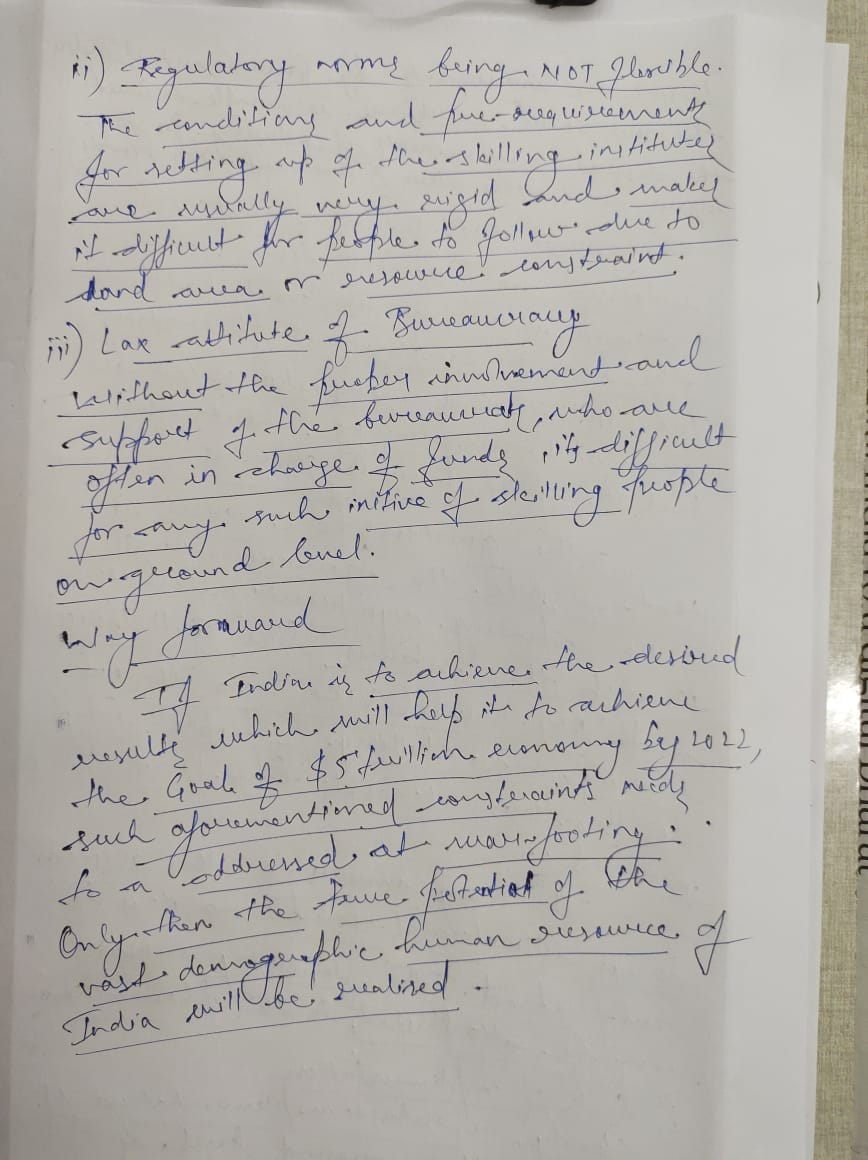 ii) Regulatory norms being NOT flexible.
The conditions and pre-requirements
for setting up of the skilling institutes
are usually very rigid and makes
it difficult for people to follow due to
land area or resource constraint.
iii) Lax attitute of Bureaucracy
Without the proper involvement and
support of the bereaucrats, who are
often in charge of funds, its difficult
for any such initive of skilling people
on ground level.
Way forward
If India is to achieve the desired
results which will help it to achieve
the Goal of $5 trillion economy by 2022,
such aforementioned constraints needs
to a addressed at war-footing.
Only then the true potential of the
vast demographic human resource of
India will be realised.